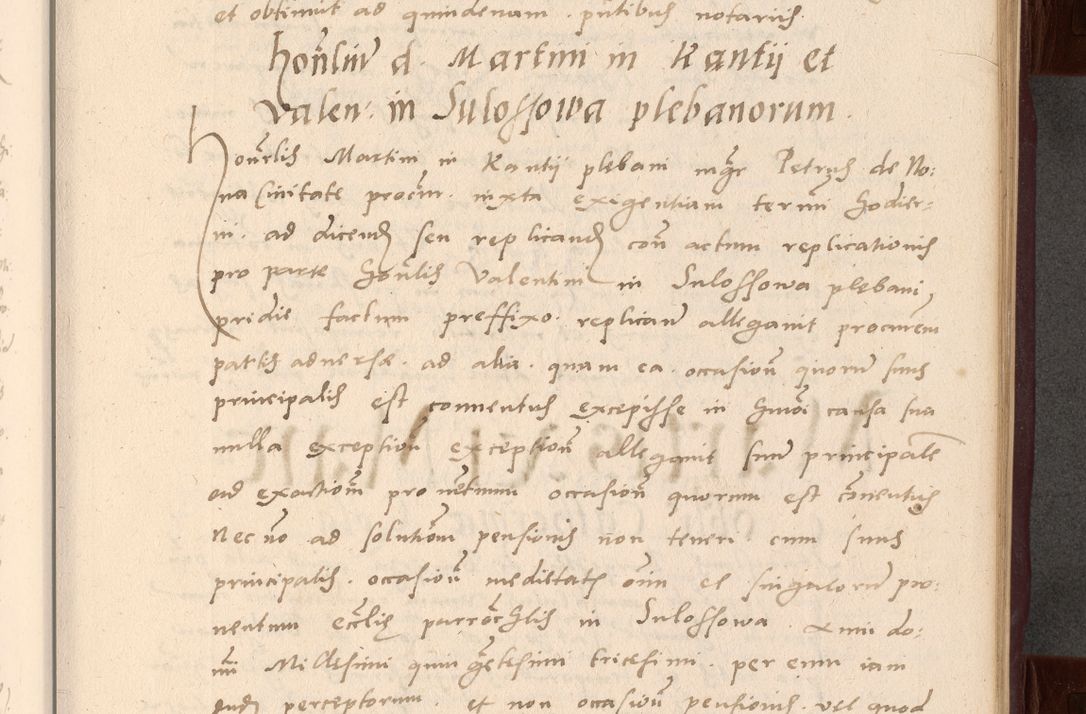 et obtinuit ad quindenam . pntibus notariis
honliu d. Martini in Kantii et
Valen: in Sulossowa plebanorum .
Honrlis Martini in Kantii plebani mgr Petrus de No:
va Civitate procur . iuxta exigentiam termi hodier=
ni . ad dicend seu replicand con actum replicationis
pro parte honlis Valentini in Sulossowa plebani
pridie factum preffixo . replican allegavit procurem
partis adverse . ad alia . quam ea . occasion quoru suus
principalis est conventus excepisse in hmoi causa sua
nulla exception exception allegavit suu principale
ad exactiom proventuum occasion quorum est conventus
nec no ad solutiom pensionis non teneri cum suus
principalis . occasion medietatis oim et singuloru pro:
ventuu ecclie parrochlis in Sulossowa . Anni do:
ni Millesimi quingetesimi tricesimi . per eum iam
perceptorum . et non occasion pensionis . vel quod